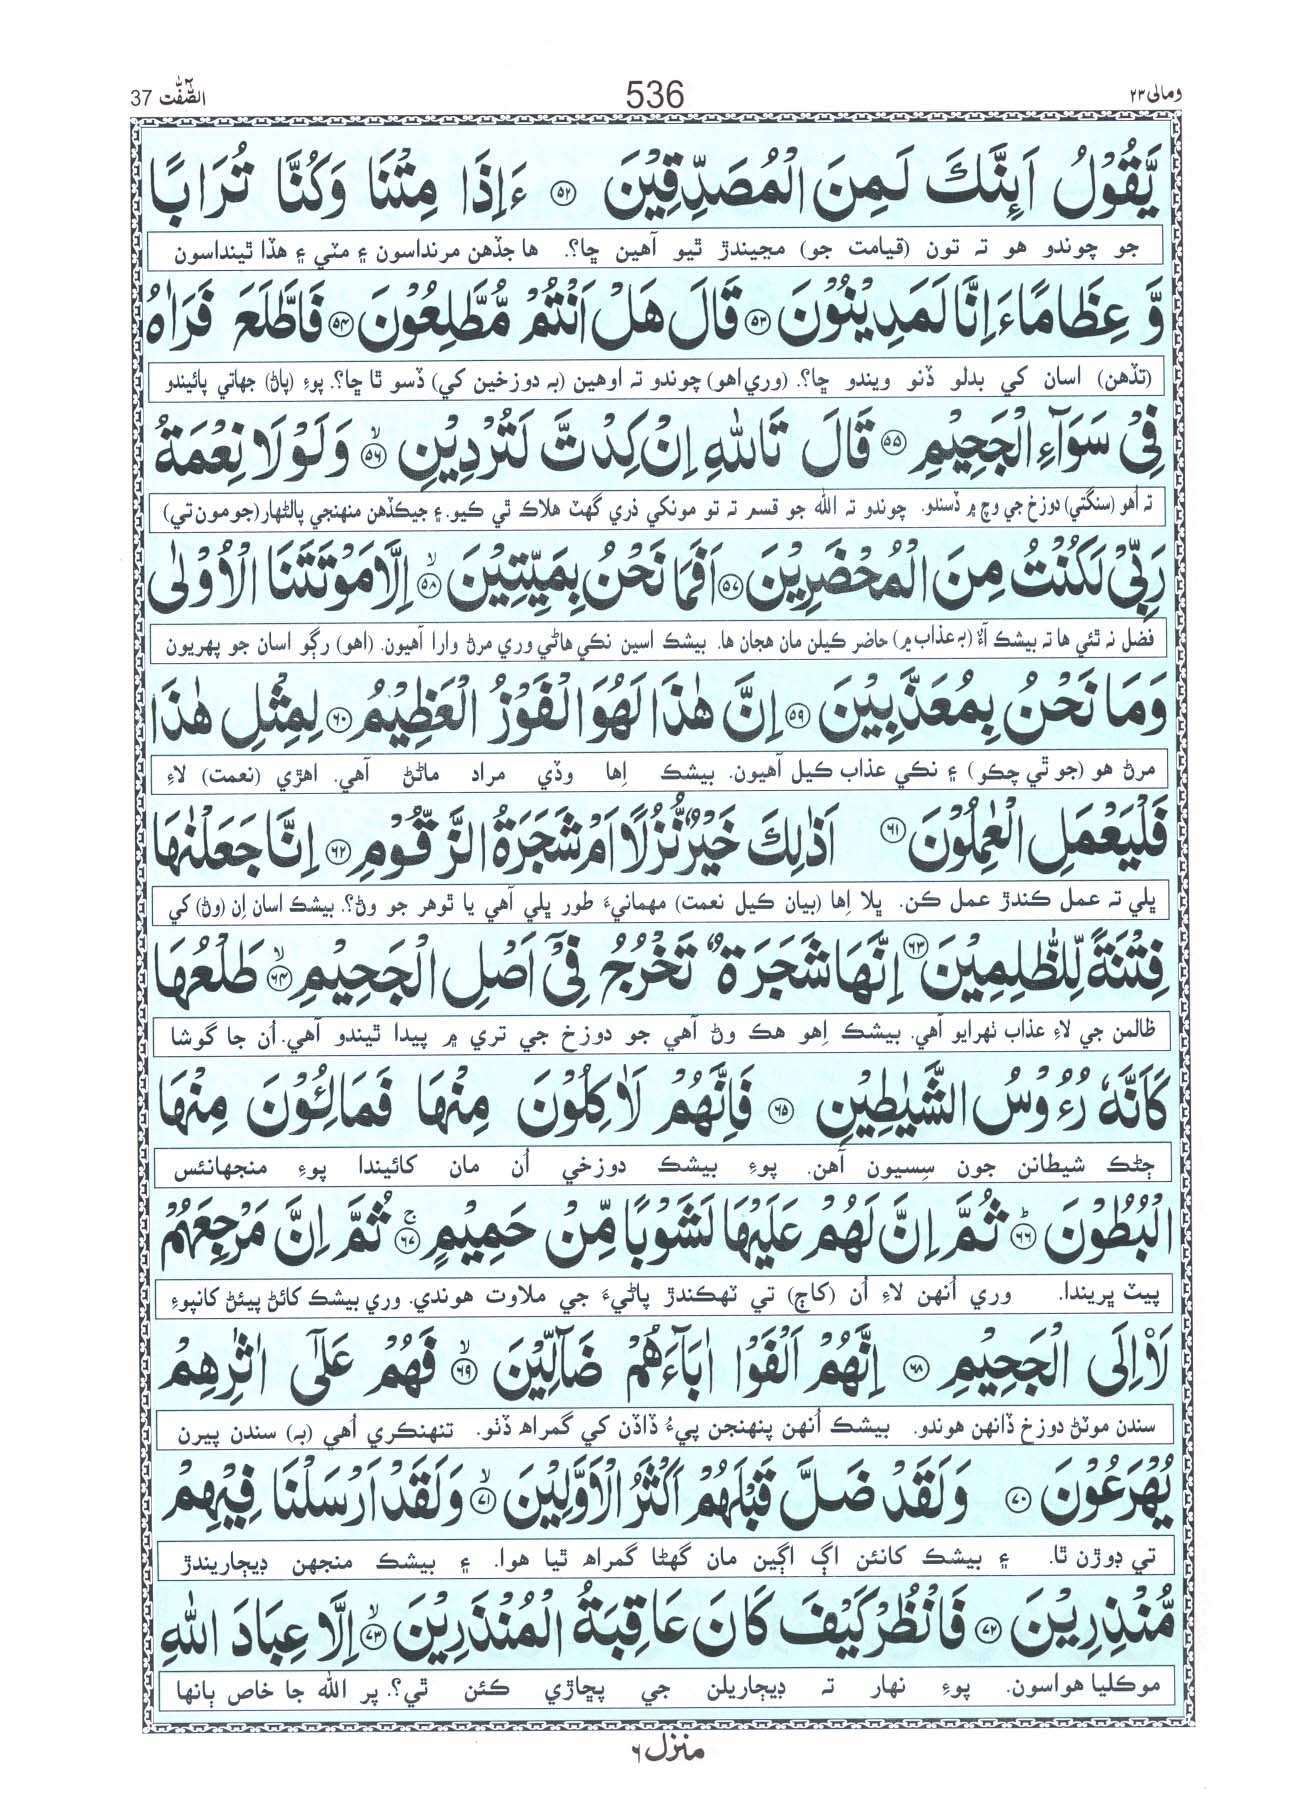 الصّٰٓفّٰت 37
536
ومالى ٢٣
يَّقُوْلُ اَىِٕنَّكَ لَمِنَ الْمُصَدِّقِيْنَ ۝۵۲ ءَاِذَا مِتْنَا وَكُنَّا تُرَابًا
جو چوندو هو ته تون (قيامت جو) مڃيندڙ ٿيو آهين ڇا؟. ها جڏهن مرنداسون ۽ مٽي ۽ هڏا ٿينداسون
وَّ عِظَامًا ءَاِنَّا لَمَدِيْنُوْنَ ۝۵۳ قَالَ هَلْ اَنْتُمْ مُّطَّلِعُوْنَ ۝۵۴ فَاطَّلَعَ فَرَاٰهُ
(تڏهن) اسان کي بدلو ڏنو ويندو ڇا؟. (وري اهو) چوندو ته اوهين (به دوزخين کي) ڏسو ٿا ڇا؟. پوءِ (پاڻ) جهاتي پائيندو
فِيْ سَوَآءِ الْجَحِيْمِ ۝۵۵ قَالَ تَاللّٰهِ اِنْ كِدْتَّ لَتُرْدِيْنِ ۙ۝۵۶ وَلَوْلَا نِعْمَةُ
ته اُهو (سنگتي) دوزخ جي وچ ۾ ڏسندو. چوندو ته الله جو قسم ته تو مونکي ذري گهٽ هلاڪ ٿي ڪيو. ۽ جيڪڏهن منهنجي پالڻهار (جو مون تي)
رَبِّيْ لَكُنْتُ مِنَ الْمُحْضَرِيْنَ ۝۵۷ اَفَمَا نَحْنُ بِمَيِّتِيْنَ ۙ۝۵۸ اِلَّا مَوْتَتَنَا الْاُوْلٰى
فضل نه ٿئي ها ته بيشڪ آءٌ (به عذاب ۾) حاضر ڪيلن مان هجان ها. بيشڪ اسين نڪي هاڻي وري مرڻ وارا آهيون. (اهو) رڳو اسان جو پهريون
وَمَا نَحْنُ بِمُعَذَّبِيْنَ ۝۵۹ اِنَّ هٰذَا لَهُوَ الْفَوْزُ الْعَظِيْمُ ۝۶۰ لِمِثْلِ هٰذَا
مرڻ هو (جو ٿي چڪو) ۽ نڪي عذاب ڪيل آهيون. بيشڪ اِها وڏي مراد ماڻڻ آهي. اهڙي (نعمت) لاءِ
فَلْيَعْمَلِ الْعٰمِلُوْنَ ۝۶۱ اَذٰلِكَ خَيْرٌ نُّزُلًا اَمْ شَجَرَةُ الزَّقُّوْمِ ۝۶۲ اِنَّا جَعَلْنٰهَا
ڀلي ته عمل ڪندڙ عمل ڪن. ڀلا اِها (بيان ڪيل نعمت) مهمانيءَ طور ڀلي آهي يا ٿوهر جو وڻ؟. بيشڪ اسان اِن (وڻ) کي
فِتْنَةً لِّلظّٰلِمِيْنَ ۝۶۳ اِنَّهَا شَجَرَةٌ تَخْرُجُ فِيْٓ اَصْلِ الْجَحِيْمِ ۙ۝۶۴ طَلْعُهَا
ظالمن جي لاءِ عذاب ٺهرايو آهي. بيشڪ اِهو هڪ وڻ آهي جو دوزخ جي تري ۾ پيدا ٿيندو آهي. اُن جا گوشا
كَاَنَّهٗ رُءُوْسُ الشَّيٰطِيْنِ ۝۶۵ فَاِنَّهُمْ لَاٰكِلُوْنَ مِنْهَا فَمَالِـُٔوْنَ مِنْهَا
ڄڻڪ شيطانن جون سِسيون آهن. پوءِ بيشڪ دوزخي اُن مان کائيندا پوءِ منجهانئس
الْبُطُوْنَ ؕ۝۶۶ ثُمَّ اِنَّ لَهُمْ عَلَيْهَا لَشَوْبًا مِّنْ حَمِيْمٍ ۚ۝۶۷ ثُمَّ اِنَّ مَرْجِعَهُمْ
پيٽ ڀريندا. وري اُنهن لاءِ اُن (کاڄ) تي ٽهڪندڙ پاڻيءَ جي ملاوت هوندي. وري بيشڪ کائڻ پيئڻ کانپوءِ
لَا۠اِلَى الْجَحِيْمِ ۝۶۸ اِنَّهُمْ اَلْفَوْا اٰبَآءَهُمْ ضَآلِّيْنَ ۙ۝۶۹ فَهُمْ عَلٰٓى اٰثٰرِهِمْ
سندن موٽڻ دوزخ ڏانهن هوندو. بيشڪ اُنهن پنهنجن پيءُ ڏاڏن کي گمراه ڏٺو. تنهنڪري اُهي (به) سندن پيرن
يُهْرَعُوْنَ ۝۷۰ وَلَقَدْ ضَلَّ قَبْلَهُمْ اَكْثَرُ الْاَوَّلِيْنَ ۙ۝۷۱ وَلَقَدْ اَرْسَلْنَا فِيْهِمْ
تي ڊوڙن ٿا. ۽ بيشڪ کانئن اڳ اڳين مان گهڻا گمراه ٿيا هوا. ۽ بيشڪ منجهن ڊيڄاريندڙ
مُّنْذِرِيْنَ ۝۷۲ فَانْظُرْ كَيْفَ كَانَ عَاقِبَةُ الْمُنْذَرِيْنَ ۙ۝۷۳ اِلَّا عِبَادَ اللّٰهِ
موڪليا هواسون. پوءِ نهار ته ڊيڄاريلن جي پڇاڙي ڪئن ٿي؟. پر الله جا خاص ٻانها
منزل ٦